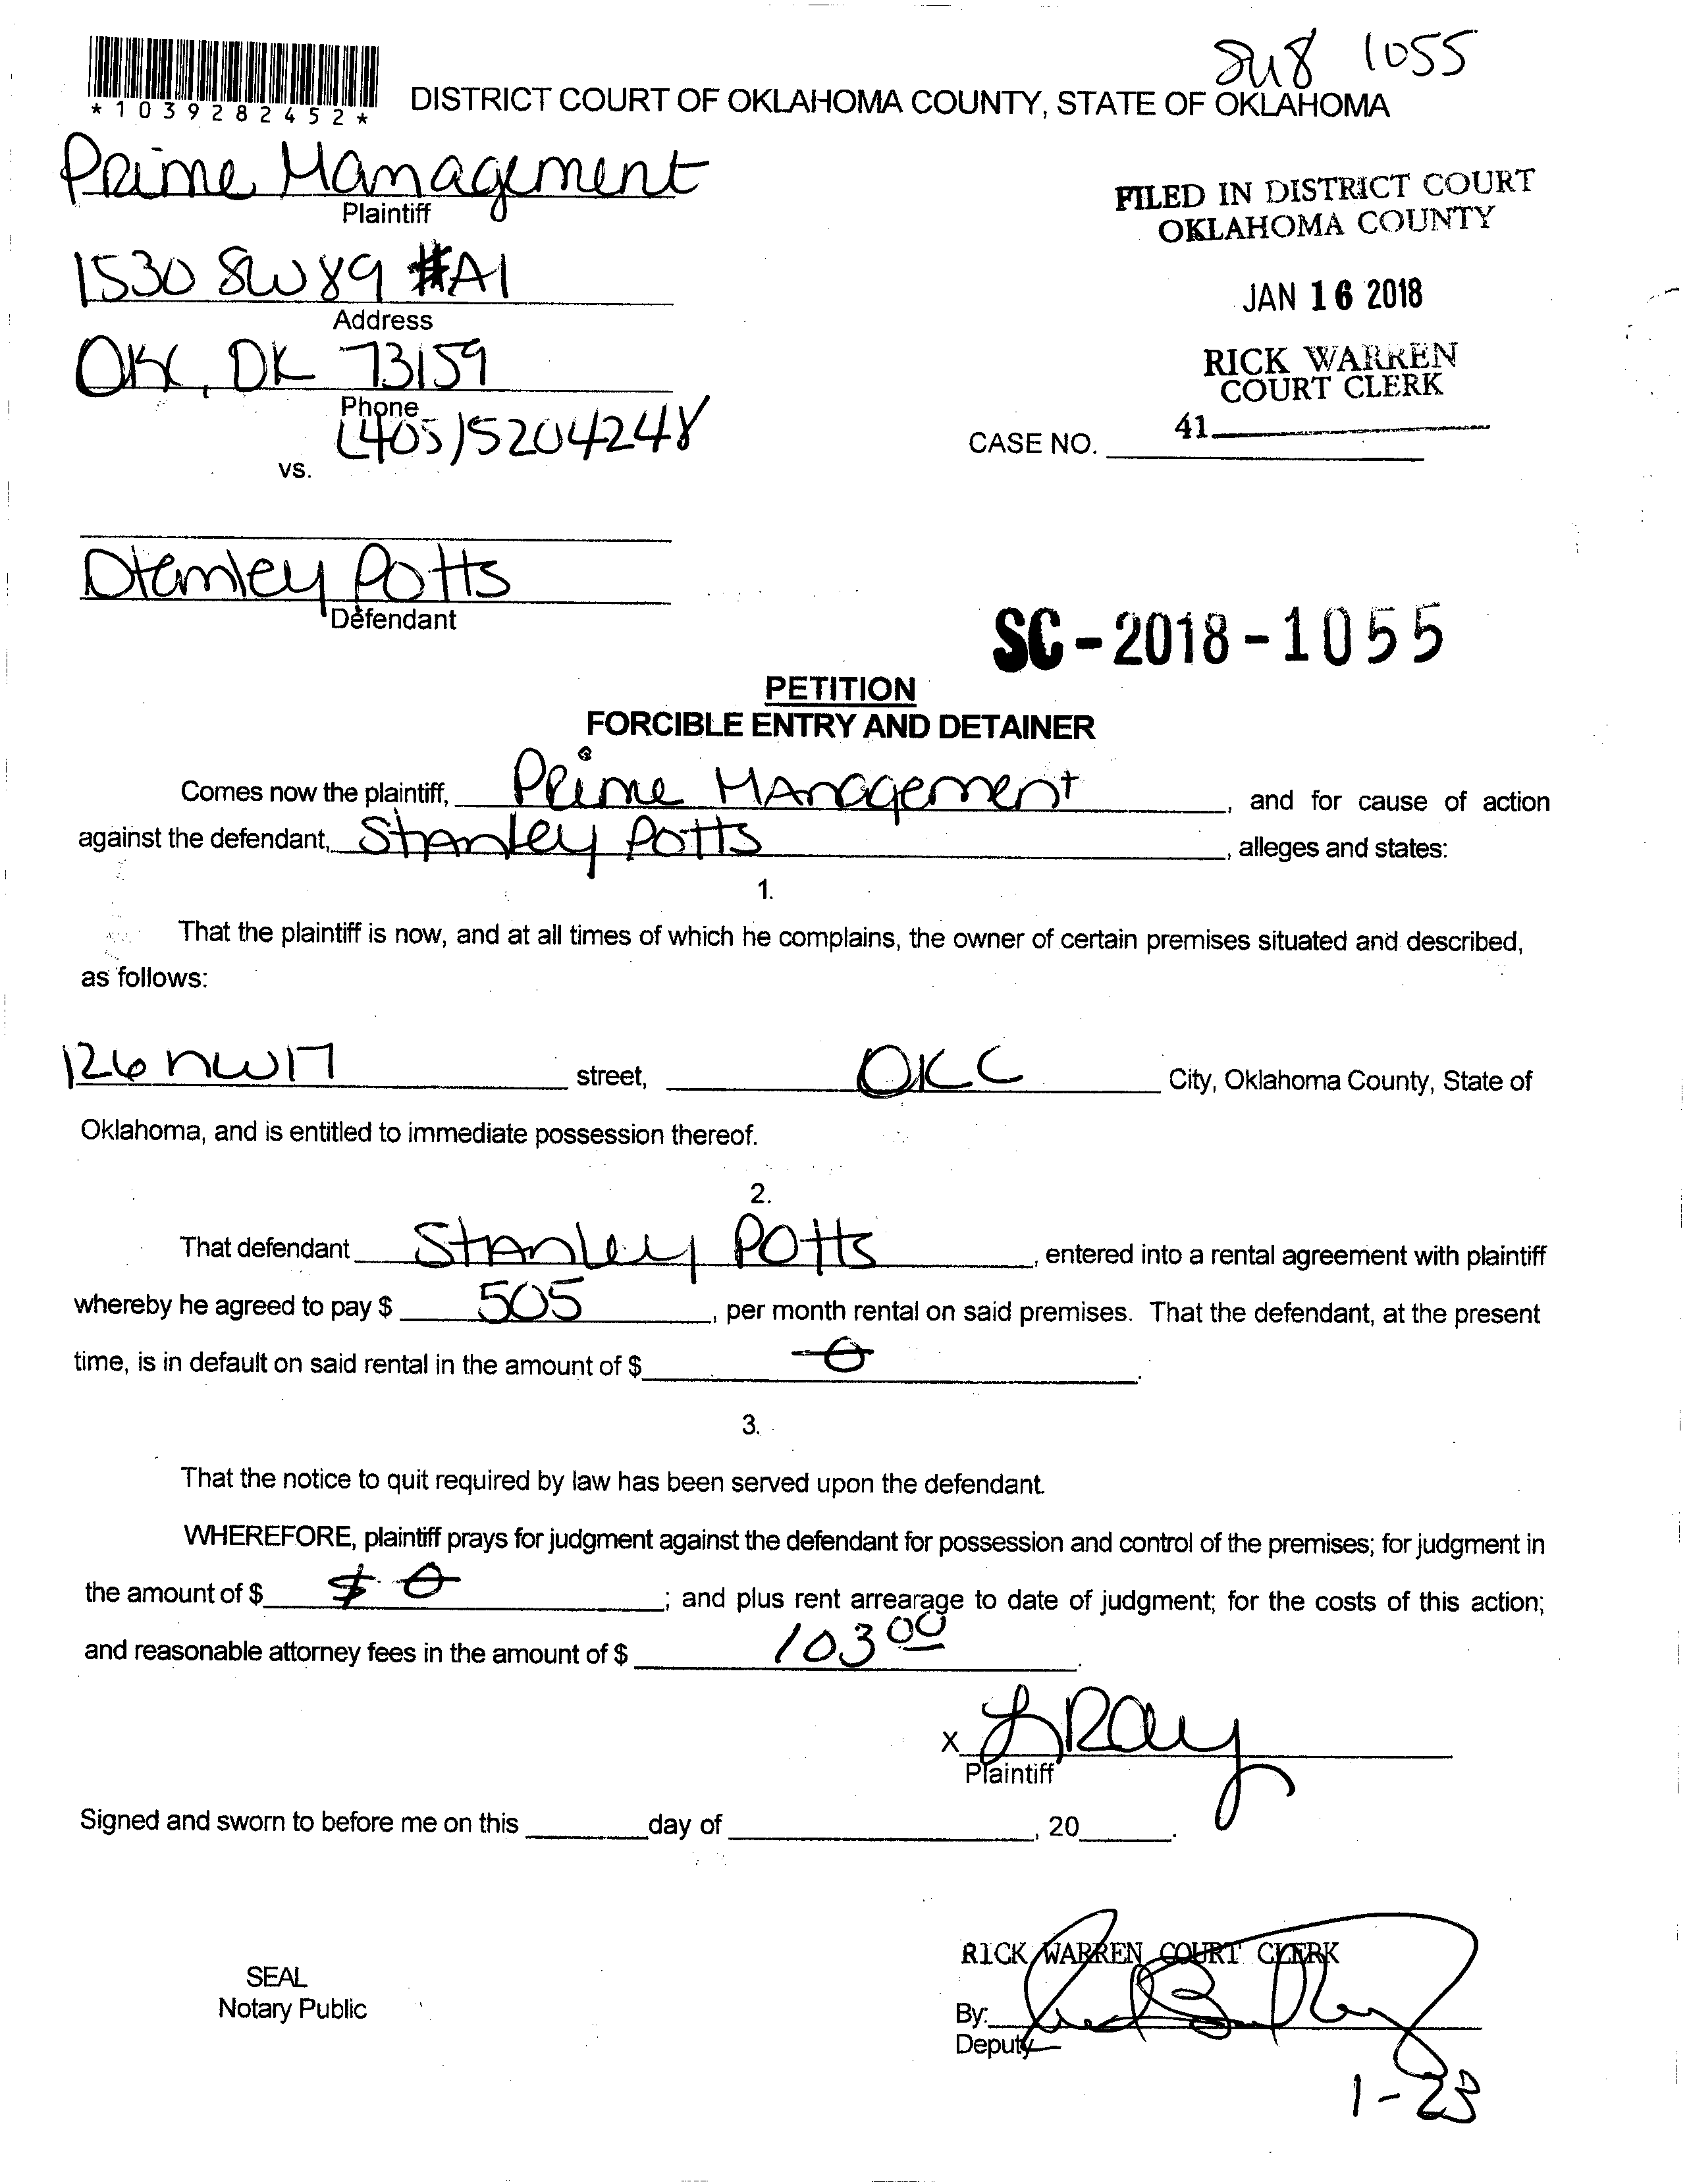 1055
*1039282452*
DISTRICT COURT OF OKLAHOMA COUNTY, STATE OF OKLAHOMA
Prime Management
Plaintiff
FILED IN DISTRICT COURT
OKLAHOMA COUNTY
1530 SW 89 #A1
Address
JAN 16 2018
OKC, OK 73159
Phone
RICK WARREN
COURT CLERK
(405)5204248
41
CASE NO.
vs.
Potts
Defendant
SC-2018-1055
PETITION
FORCIBLE ENTRY AND DETAINER
Comes now the plaintiff, Prime Management, and for cause of action
against the defendant, Stanley Potts, alleges and states:
1.
That the plaintiff is now, and at all times of which he complains, the owner of certain premises situated and described,
as follows:
126 NW 17 street, OKC City, Oklahoma County, State of
Oklahoma, and is entitled to immediate possession thereof.
2.
That defendant Stanley Potts, entered into a rental agreement with plaintiff
whereby he agreed to pay $ 505, per month rental on said premises. That the defendant, at the present
time, is in default on said rental in the amount of $ 0.
3.
That the notice to quit required by law has been served upon the defendant.
WHEREFORE, plaintiff prays for judgment against the defendant for possession and control of the premises; for judgment in
the amount of $ $ 0; and plus rent arrearage to date of judgment; for the costs of this action;
and reasonable attorney fees in the amount of $ 103 00.
X LRay
Plaintiff
Signed and sworn to before me on this day of , 20 .
RICK WARREN COURT CLERK
SEAL
Notary Public
By:
Deputy
1-23